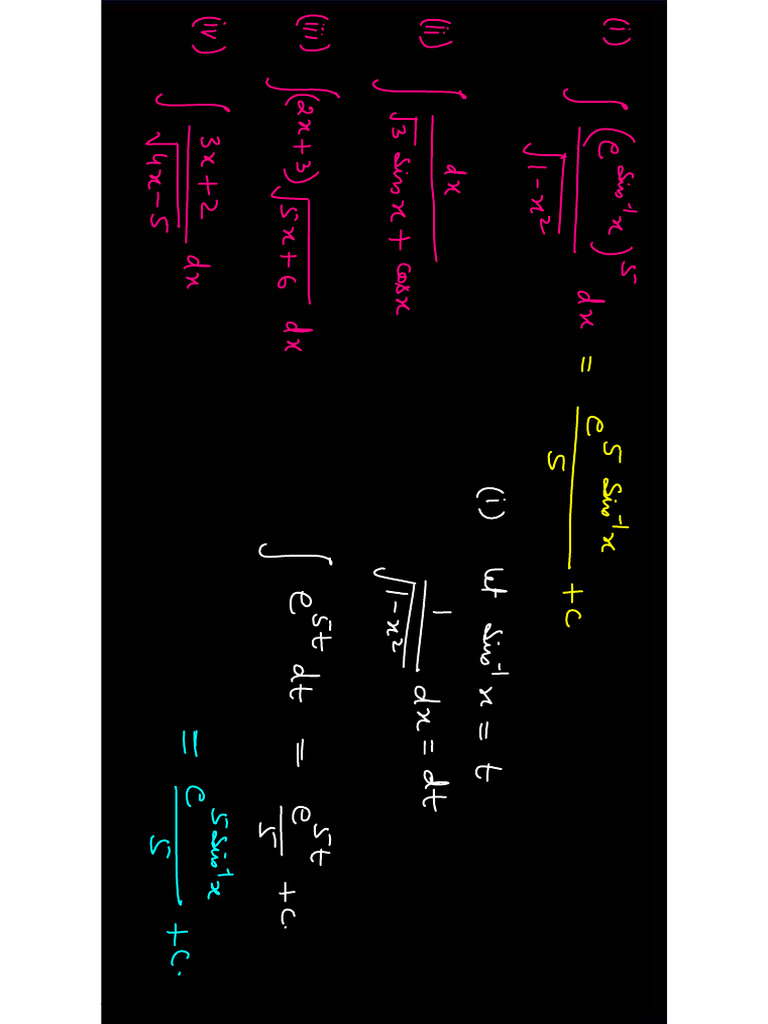 (i) ∫ (e^{sin⁻¹x})^5 / √(1-x²) dx = e^{5 sin⁻¹x} / 5 + c
(ii) ∫ dx / (√3 sin x + cos x)
(iii) ∫ (2x+3) √(5x+6) dx
(iv) ∫ (3x+2) / √(4x-5) dx
(i) let sin⁻¹x = t
1 / √(1-x²) dx = dt
∫ e^{5t} dt = e^{5t} / 5 + c.
= e^{5 sin⁻¹x} / 5 + c.